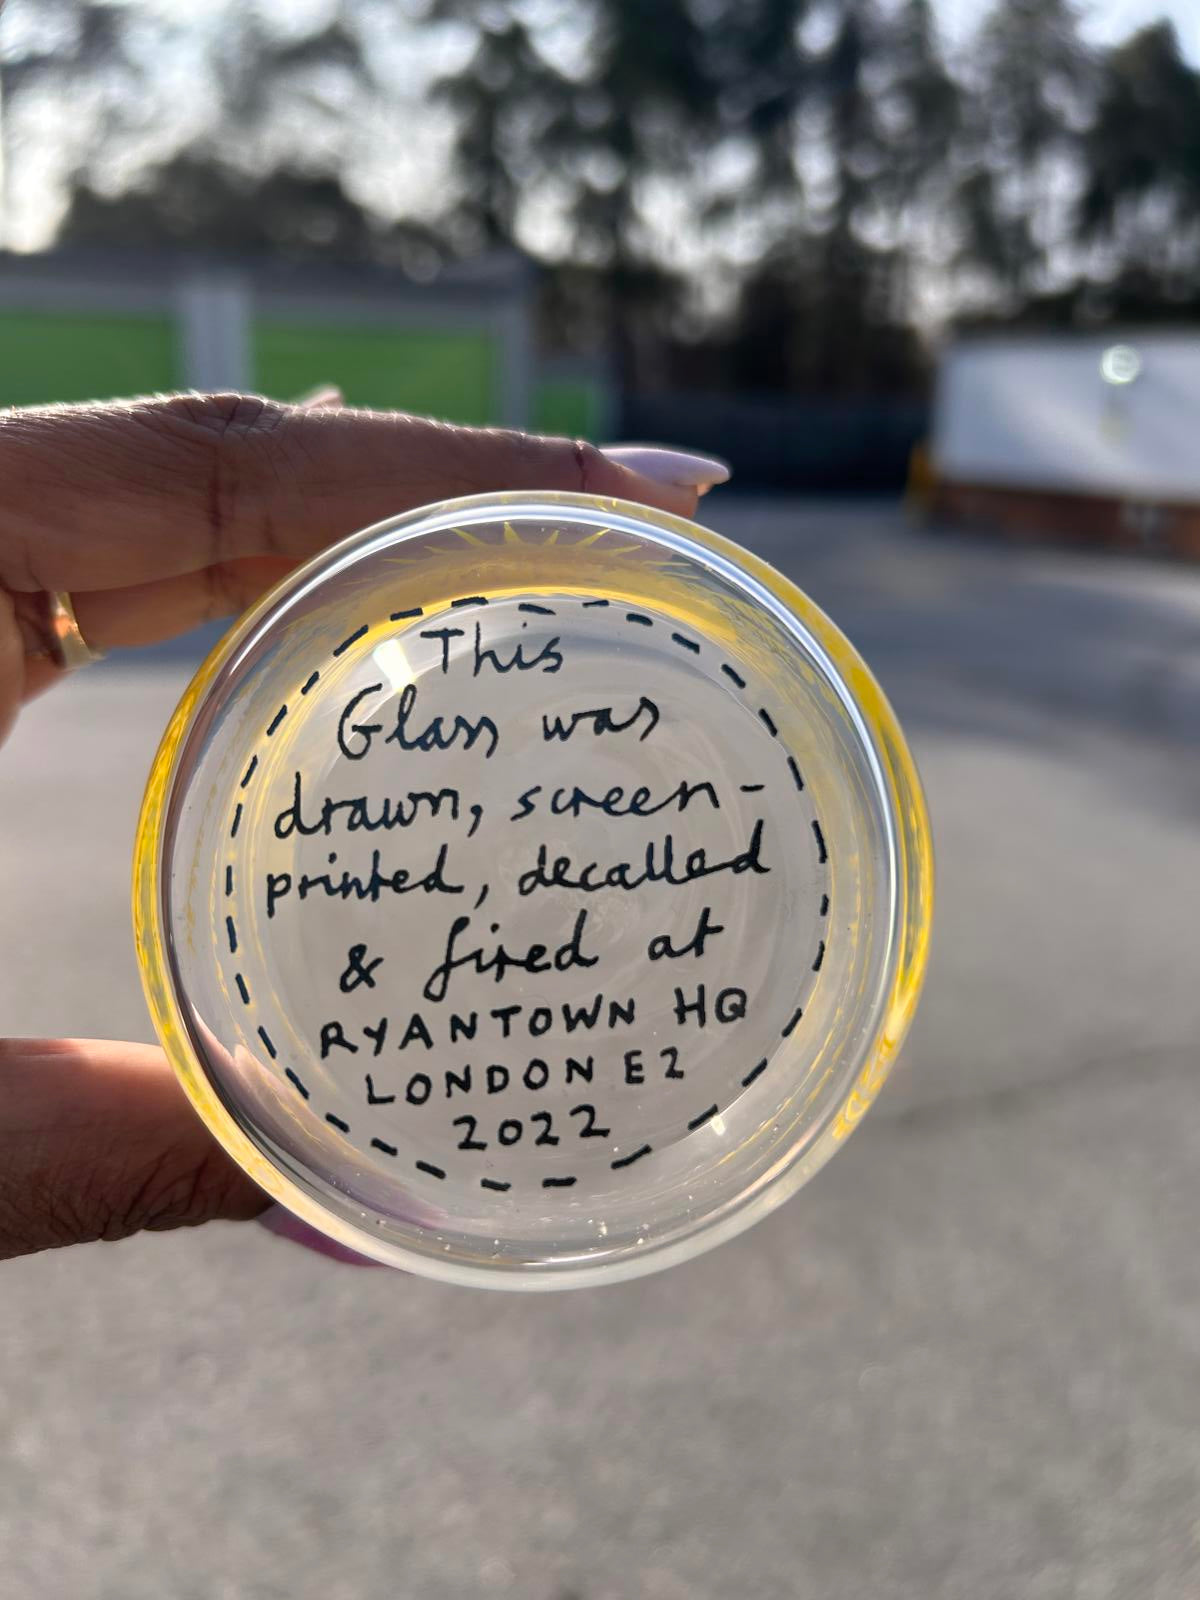 This
Glass was
drawn, screen-
printed, decalled
& fired at
RYANTOWN HQ
LONDON E2
2022